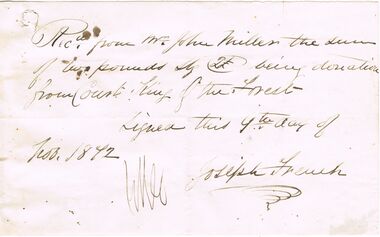 Recd from Mr John Millers the sum
of two pounds stg £2 being donation
from Court King of the Forest
Signed this 9th day of
Nov. 1892
Joseph French